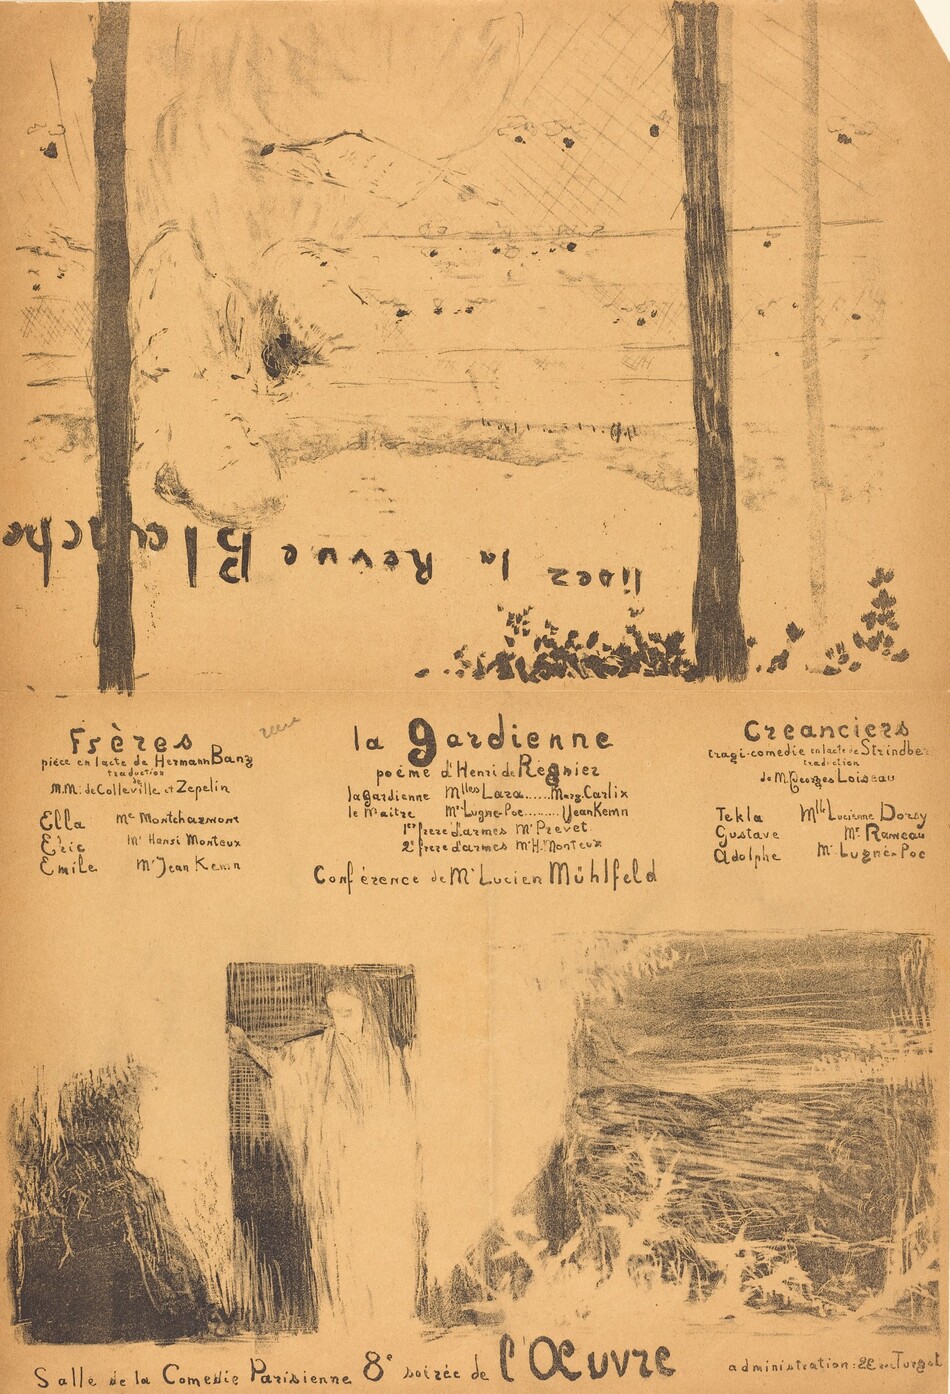 lisez la Revue Blanche
Frères
pièce en 1 acte de Hermann Bang
traduction
de
M.M. de Colleville et Zepelin
Ella Me Montcharmont
Eric Mr Henri Monteux
Emile Mr Jean Kemm
la gardienne
poème d'Henri de Régnier
la gardienne Mlles Lara......Marg. Carlix
le Maitre Mr Lugne-Poe.........Jean Kemm
1er frere d'armes Mr Prevet
2e frere d'armes Mr H. Monteux
Conférence de Mr Lucien Mühlfeld
Creanciers
tragi-comedie en 1 acte de Strindber
traduction
de M. Georges Loiseau
Tekla Mlle Lucienne Dorsy
Gustave Mr Rameau
Adolphe Mr Lugné-Poe
Salle de la Comedie Parisienne 8e soirée de l'Œuvre
administration: 22 rue Turgot